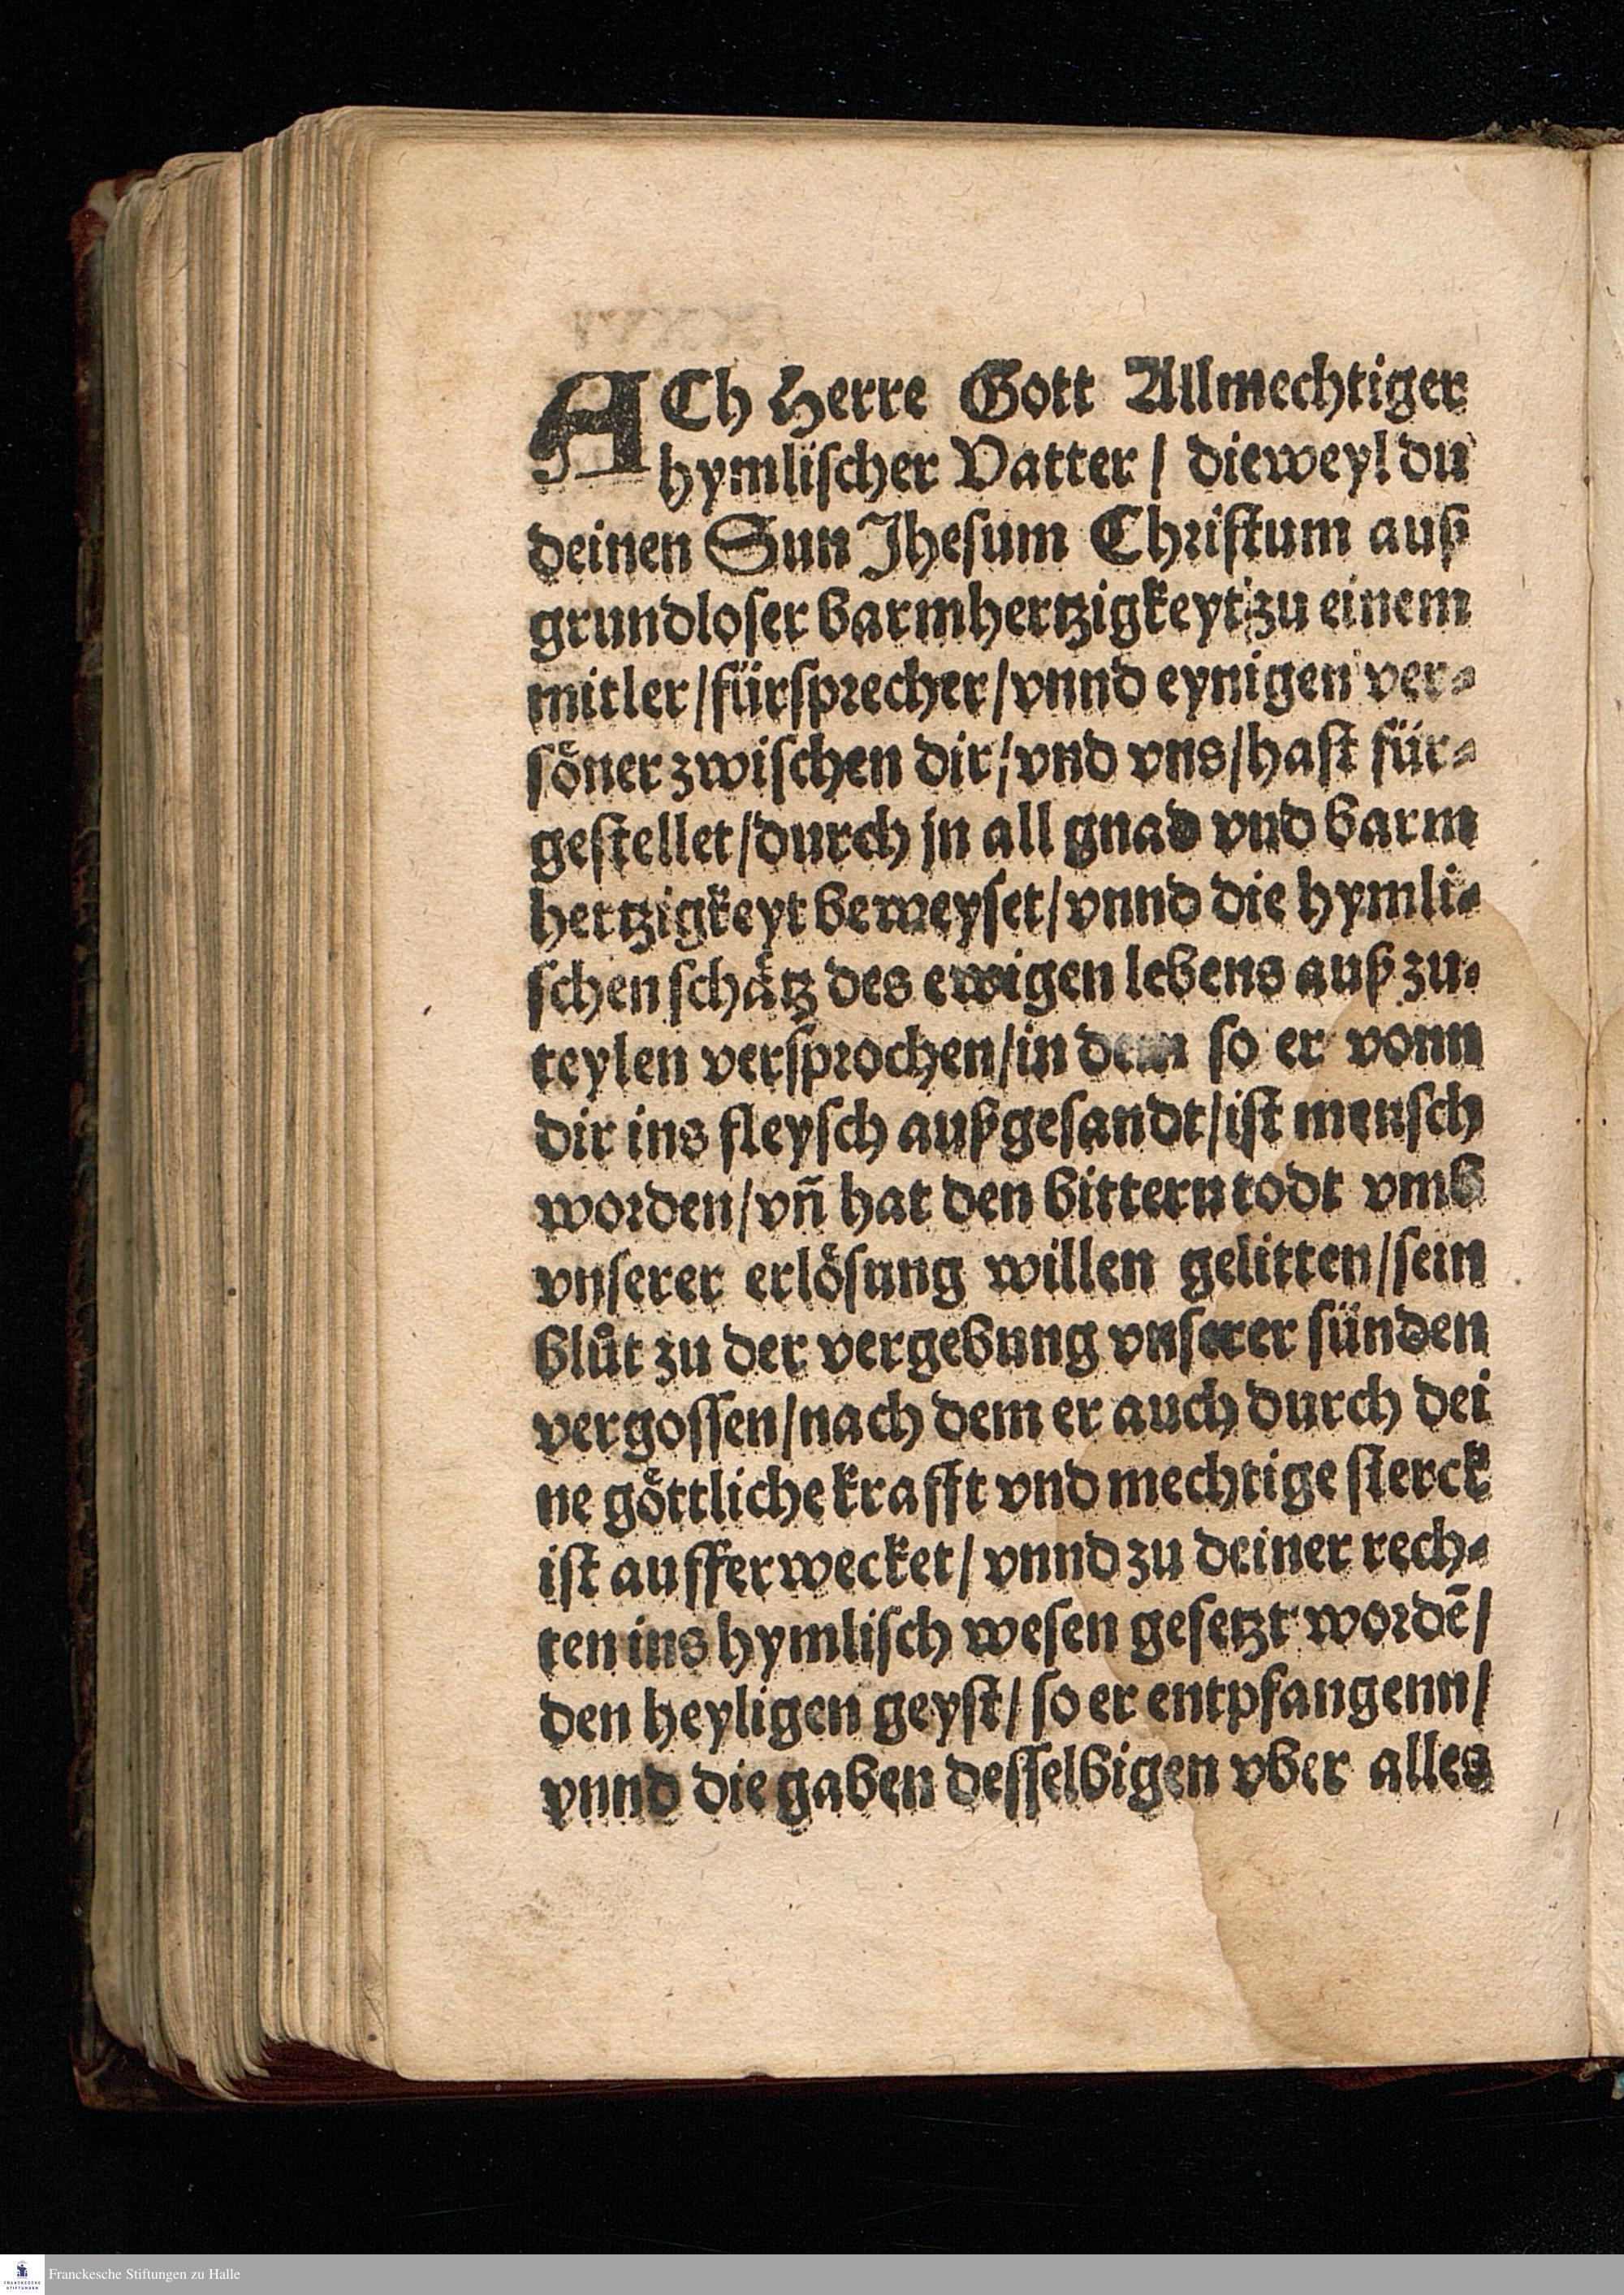 ACh Herre Gott Allmechtiger
hymlischer Vatter / dieweyl du
deinen Sun Jhesum Christum auß
grundloser barmhertzigkeyt zu einem
mitler / fürsprecher / vnnd eynigen ver⸗
söner zwischen dir / vnd vns / hast für⸗
gestellet / durch jn all gnad vnd barm
hertzigkeyt beweyset / vnnd die hymli⸗
schen schätz des ewigen lebens auß zu⸗
teylen versprochen / in dem so er vonn
dir ins fleysch außgesandt / ist mensch
worden / vñ hat den bittern todt vmb
vnserer erlösung willen gelitten / sein
blůt zu der vergebung vnserer sünden
vergossen / nach dem er auch durch dei
ne göttliche krafft vnd mechtige sterck
ist aufferwecket / vnnd zu deiner rech⸗
ten ins hymlisch wesen gesetzt wordē /
den heyligen geyst / so er entpfangenn /
vnnd die gaben desselbigen vber alles
Franckesche Stiftungen zu Halle